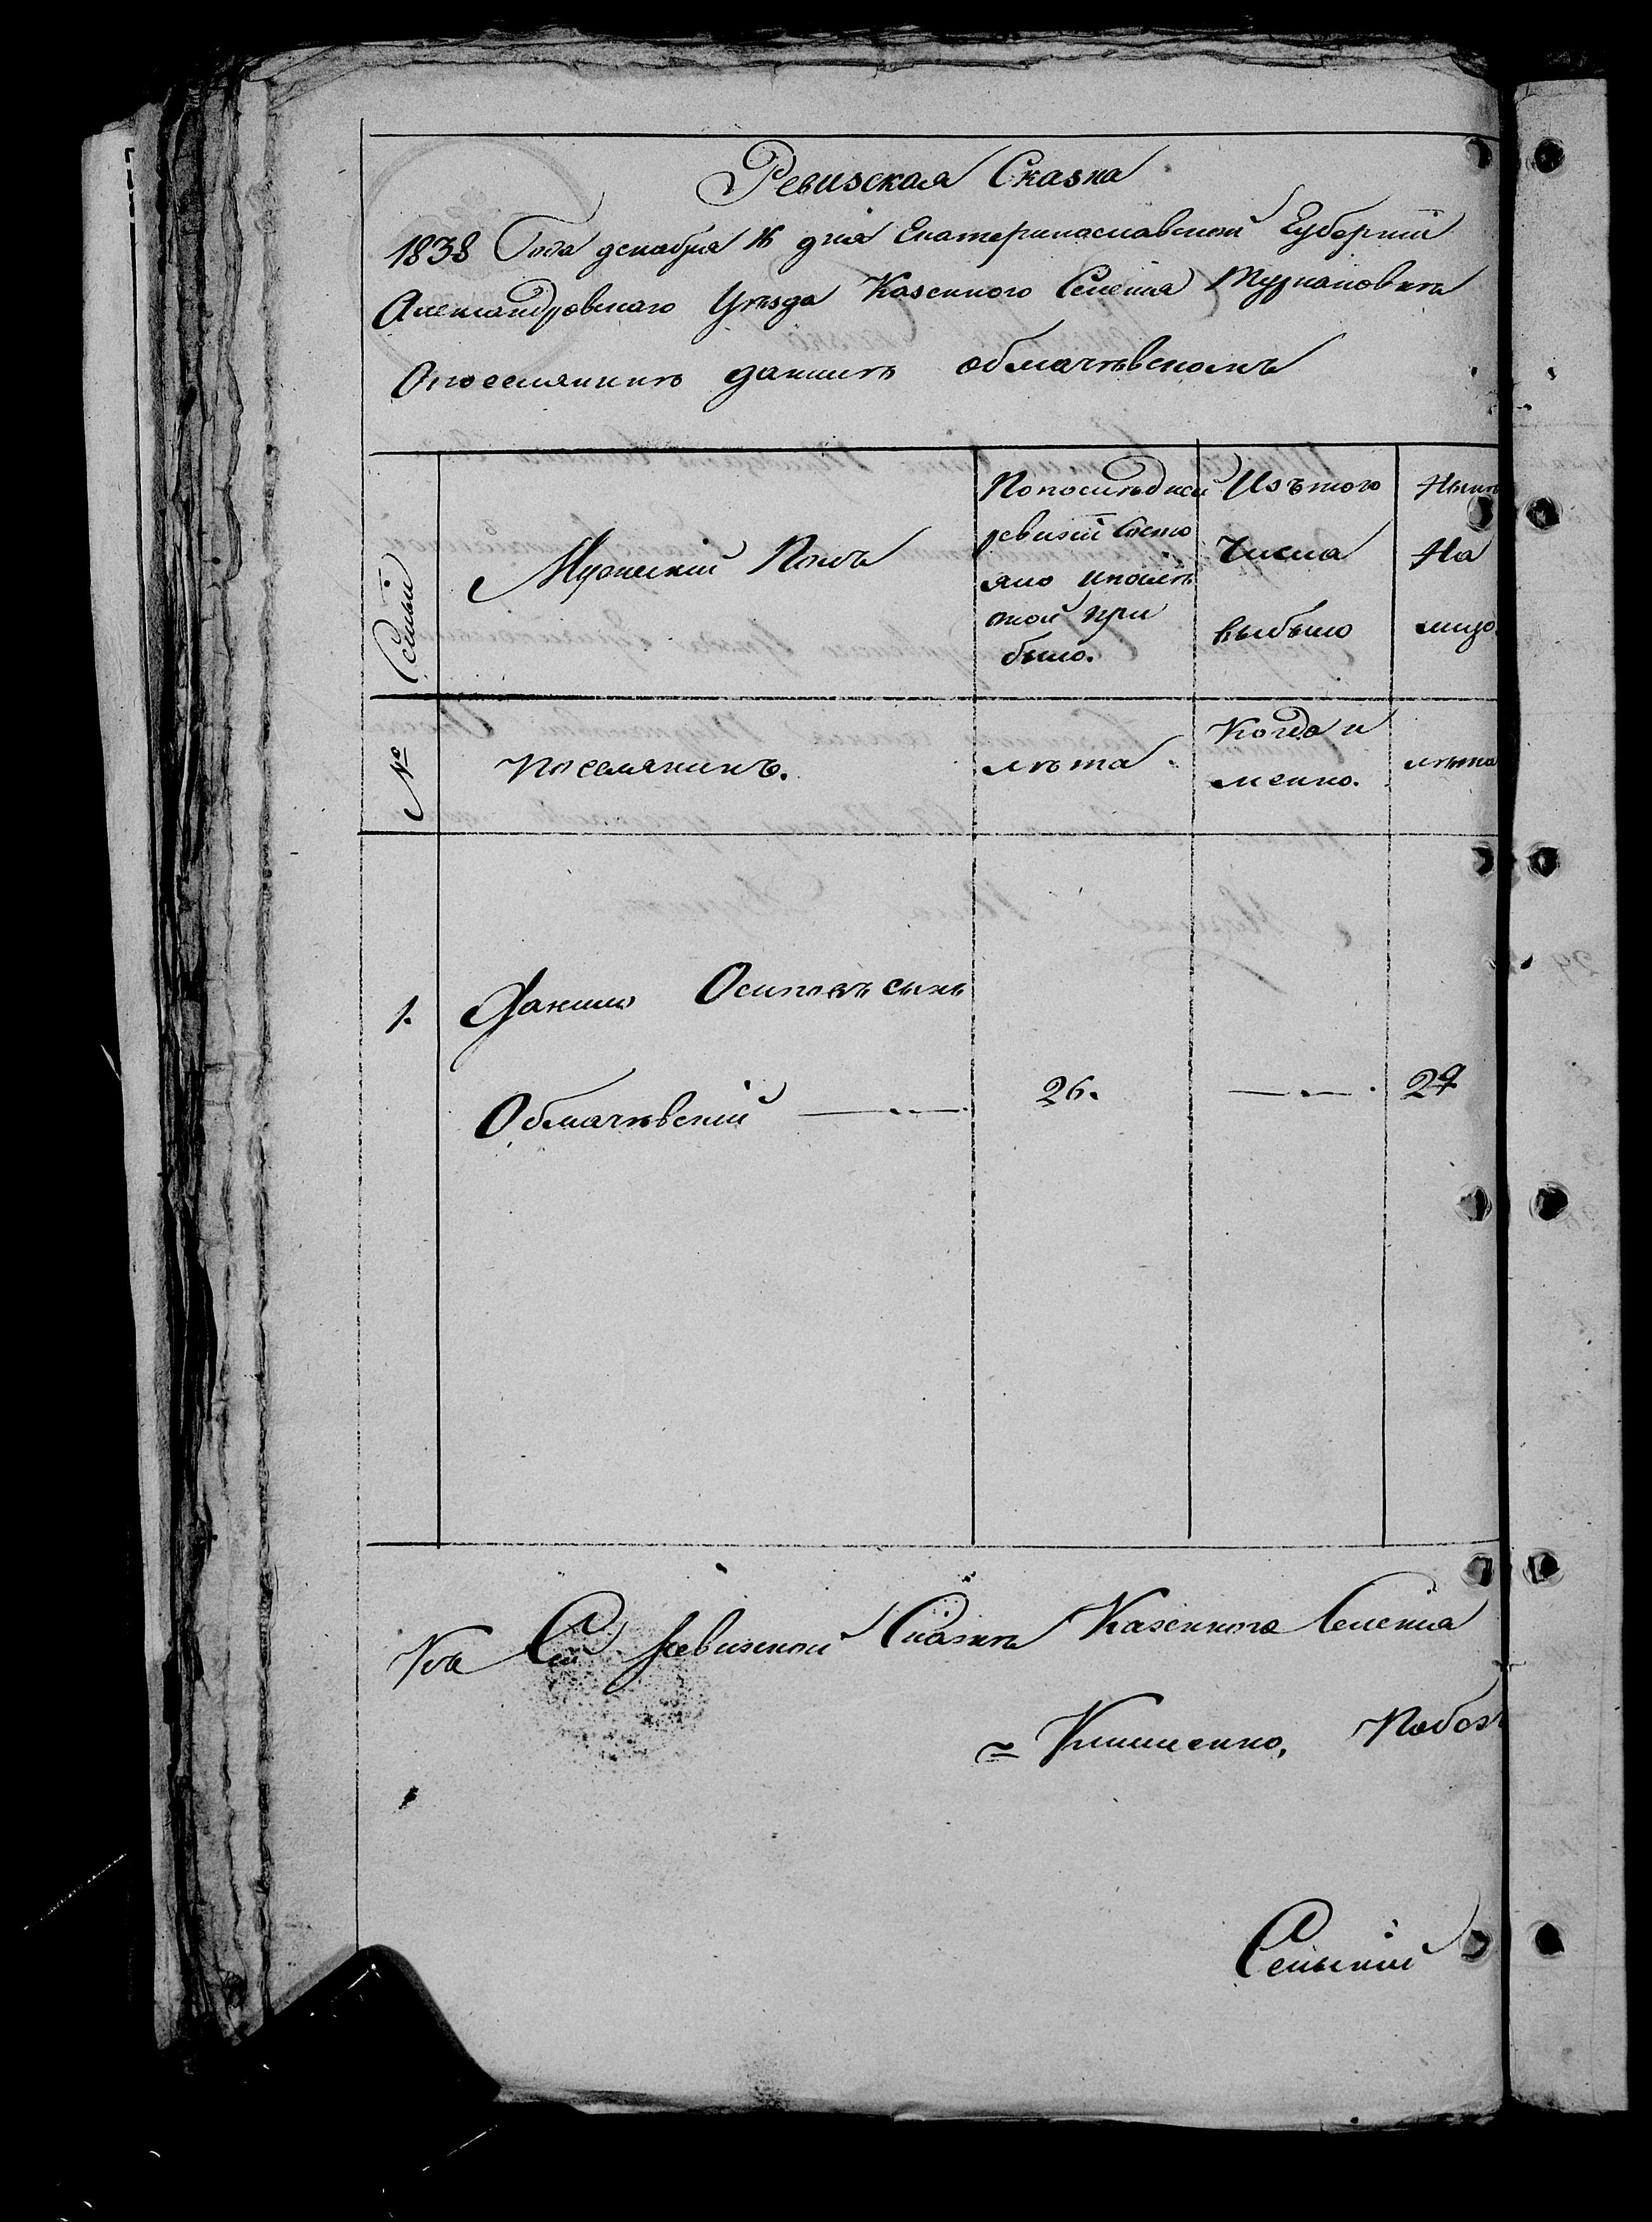 Ревизская Сказка
1838 Года декабря 16 дня Екатеринославской Губернiи
Александровскаго Уѣзда Казенного Селенiя Туркановки
Опоселянинѣ данилѣ обмачѣвскомъ
Семьи
Мужескiй Полъ
Попослѣдней
ревизiи состо
яло ипослѣ
той при
было.
Изътого
Числа
выбыло
Нынѣ
На
лицо
№
поселянинъ.
лѣта.
Когда и
менно.
лѣта
1. Данило Осиповъ сынъ
Обмачѣвскiй 26. 29
Къ Сей ревизской Сказкѣ Казенного Селенiя
Клименко,
Сельскiй